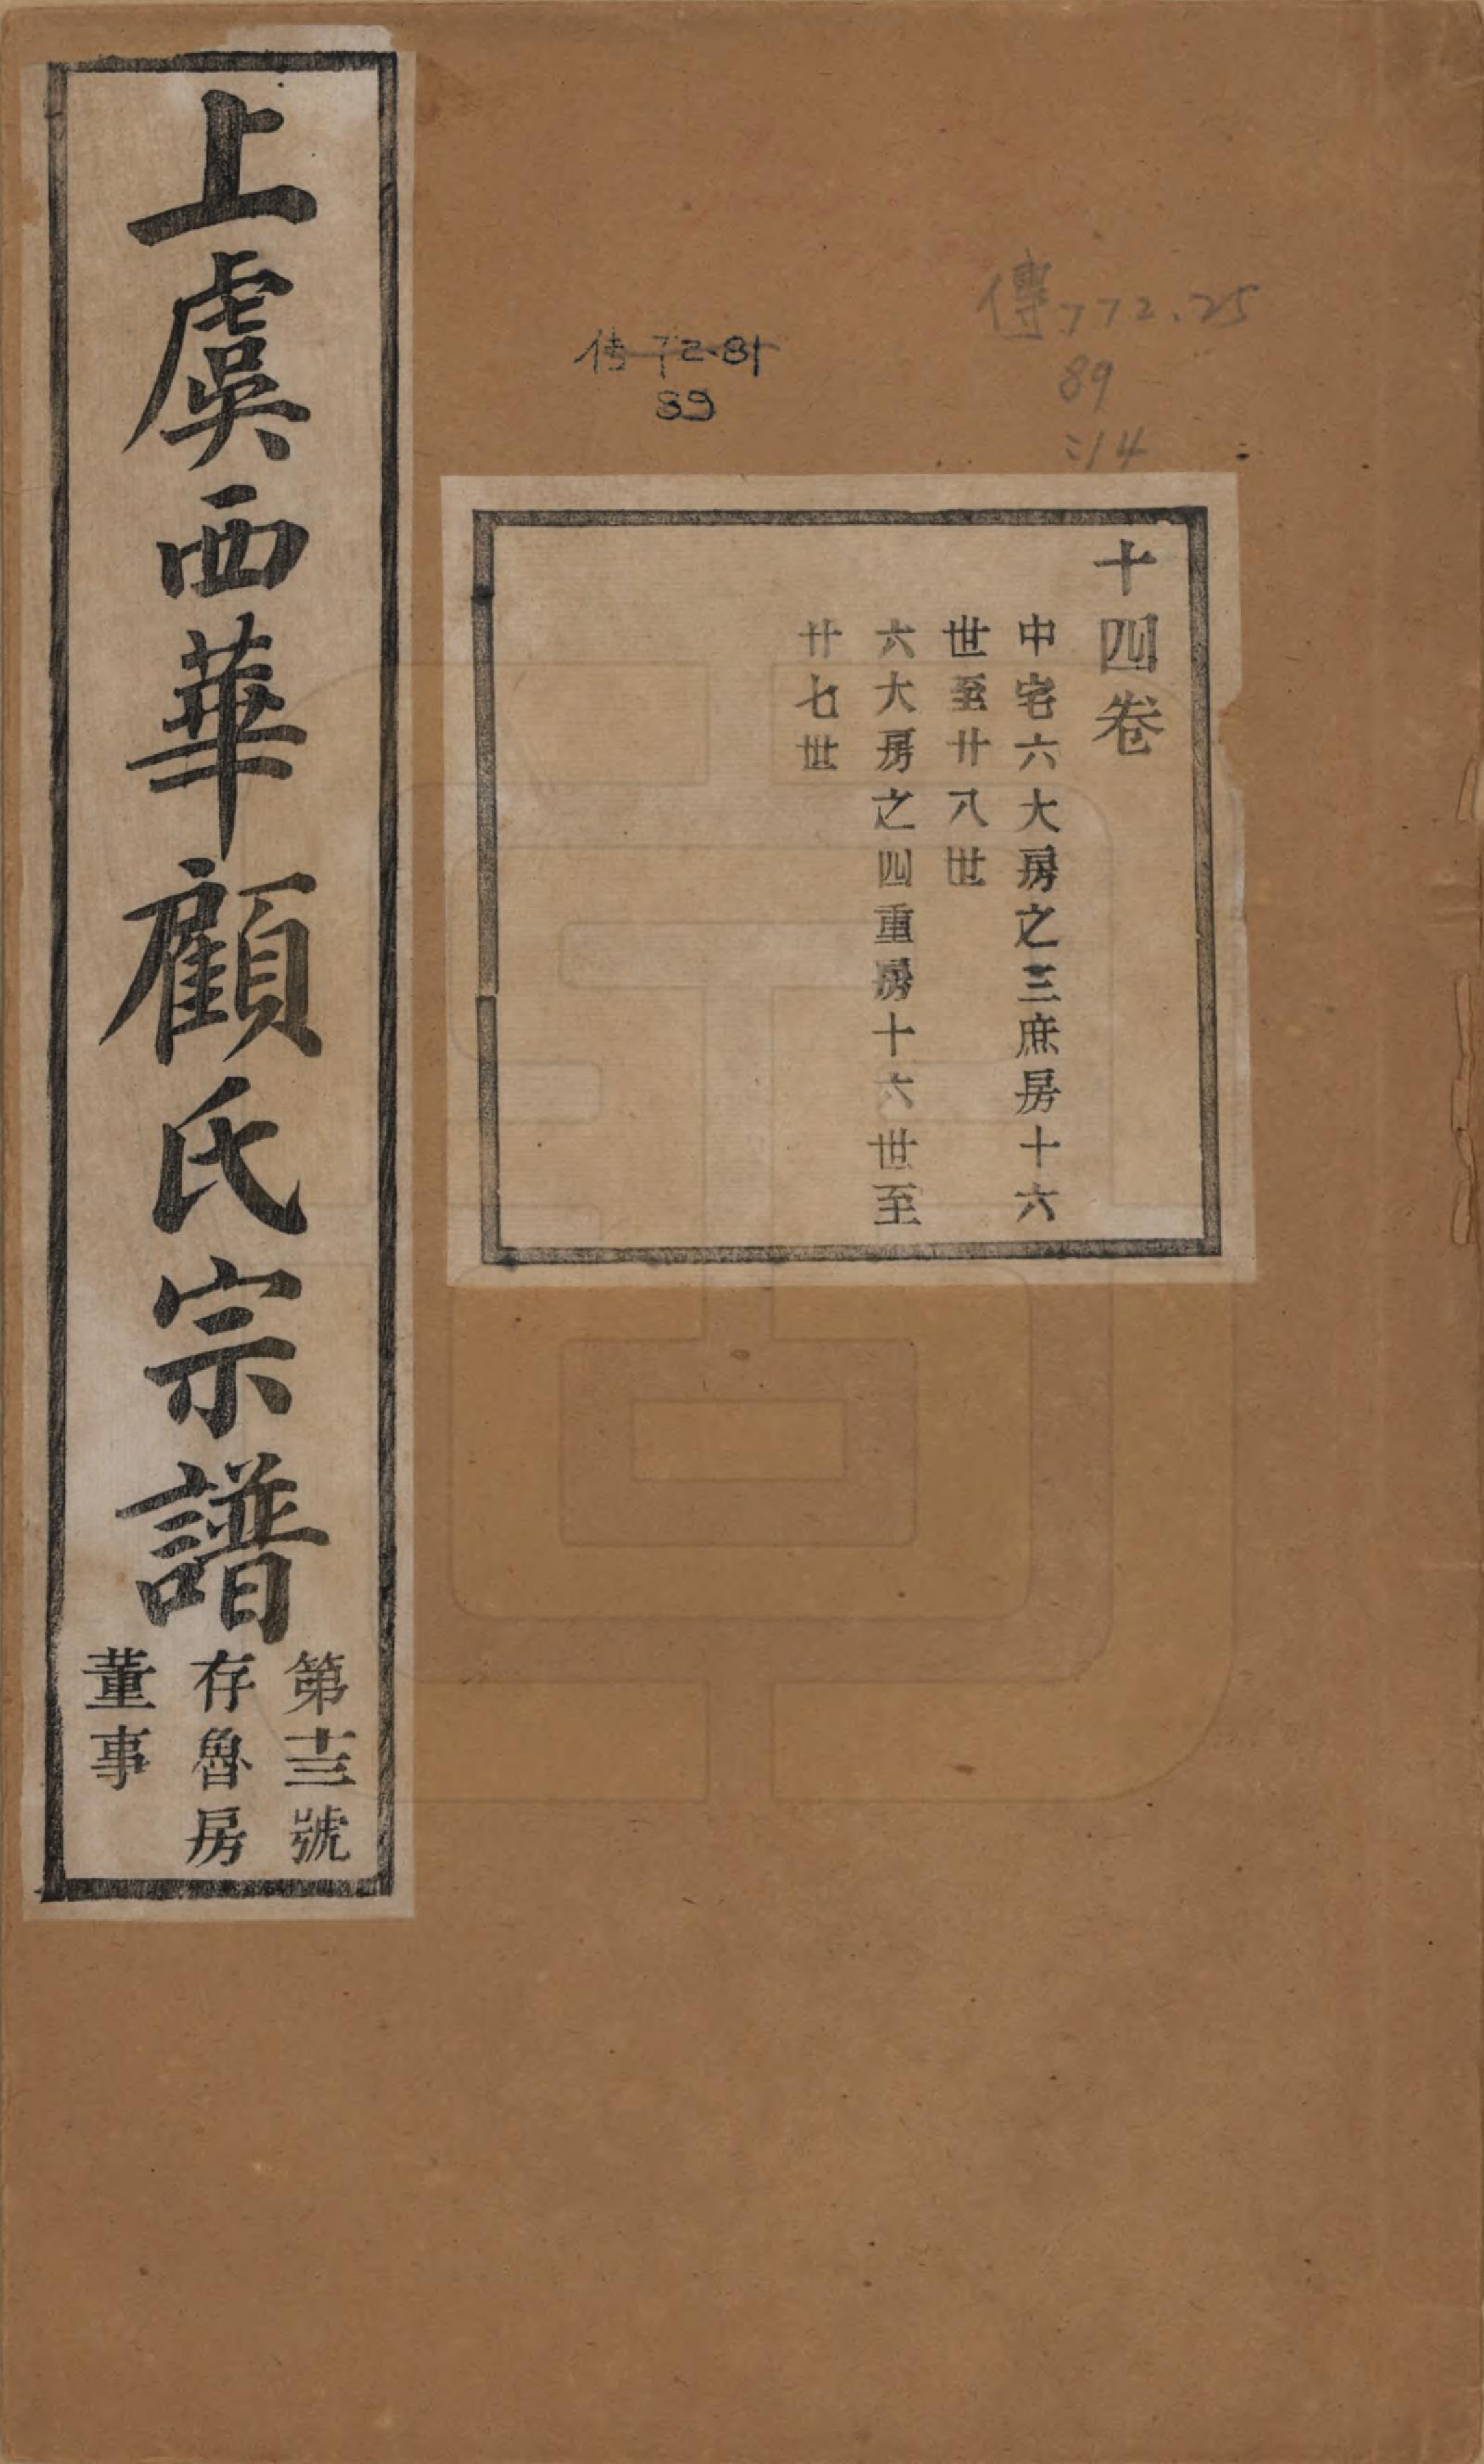 傳772.25
89
:14
传 72.81
89
十四卷
中宅六大房之三庶房十六
世至廿八世
六大房之四重房十六世至
廿七世
上虞西華顧氏宗譜
第十三號
存魯房
董事